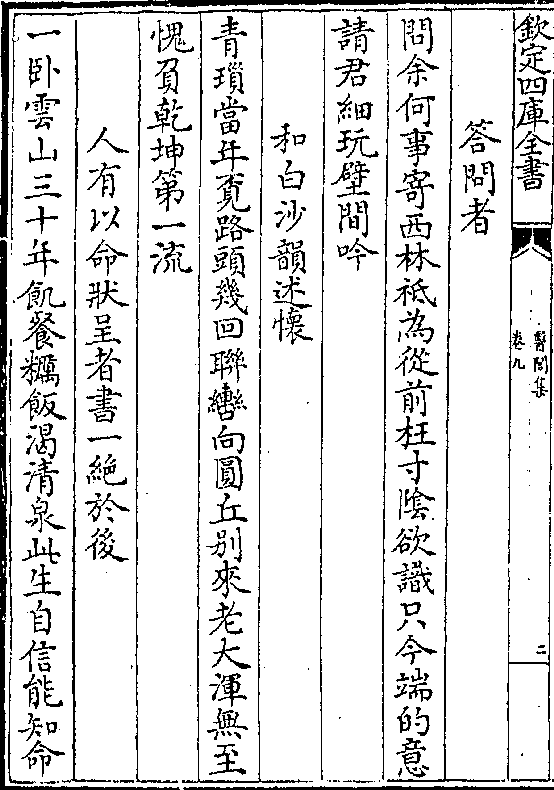 欽定四庫全書
醫閭集
卷九
二
答問者
問余何事寄西林祗為從前枉寸隂欲識只今端的意
請君細玩壁間吟
和白沙韻述懷
青瑣當年覔路頭幾回聯轡向圓丘别來老大渾無至
愧負乾坤第一流
人有以命狀呈者書一絶於後
一卧雲山三十年飢餐糲飯渴清泉此生自信能知命